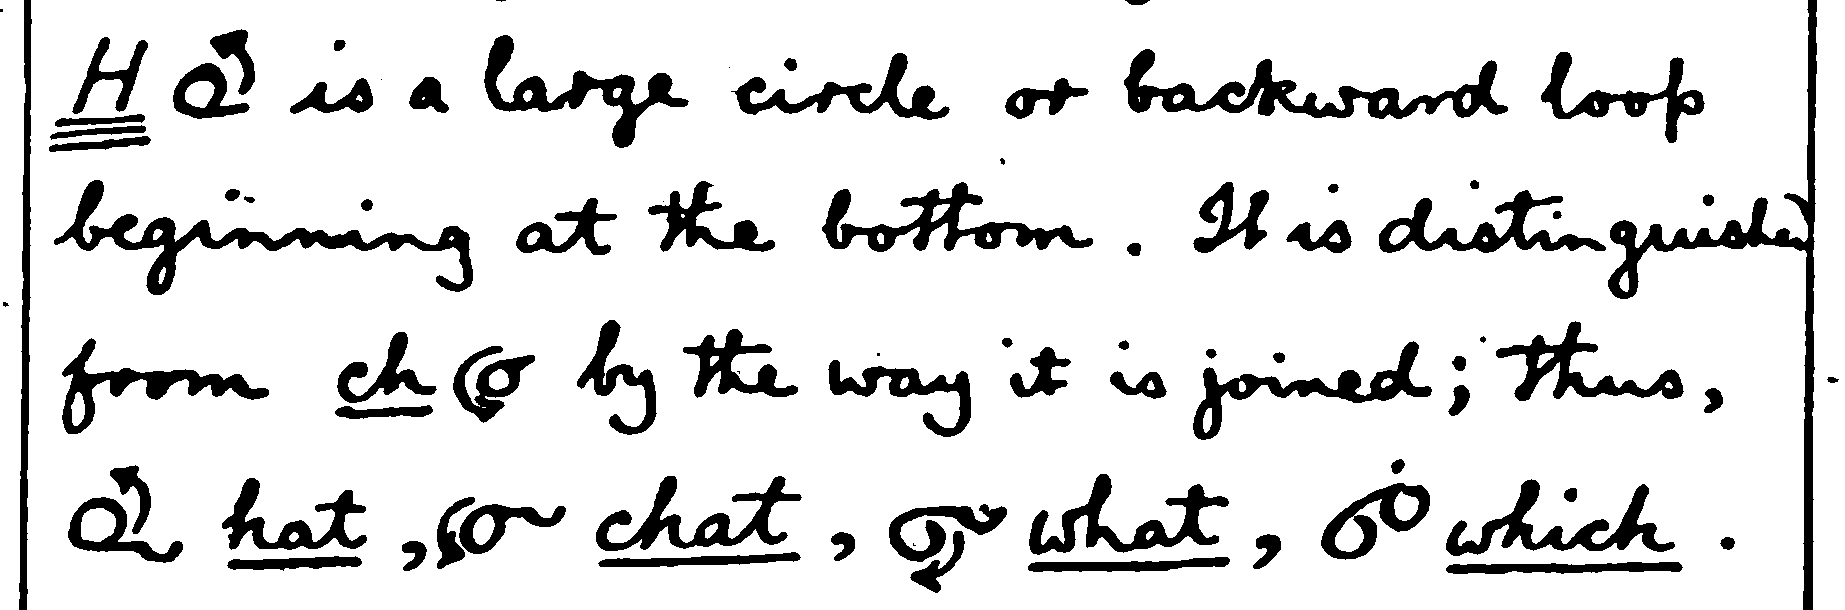 H is a large circle or backward loop
beginning at the bottom. It is distinguished
from ch by the way it is joined; thus,
hat, chat, what, which.